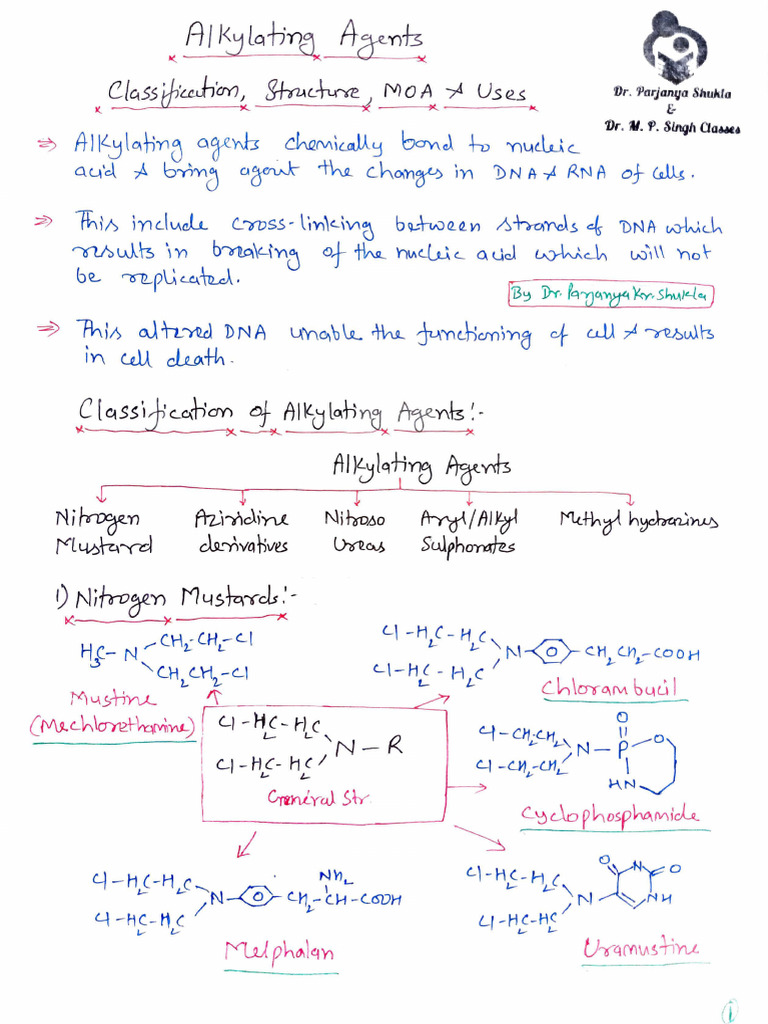 Alkylating Agents
Classification, Structure, MOA & Uses
Dr. Parjanya Shukla
&
Dr. M. P. Singh Classes
⇒ Alkylating agents chemically bond to nucleic
acid & bring agout the changes in DNA & RNA of cells.
⇒ This include cross-linking between strands of DNA which
results in breaking of the nucleic acid which will not
be replicated.
By Dr. Parjanya Kr. Shukla
⇒ This altered DNA unable the functioning of cell & results
in cell death.
Classification of Alkylating Agents:-
Alkylating Agents
Nitrogen Mustard
Aziridine derivatives
Nitroso Ureas
Aryl/Alkyl Sulphonates
Methyl hydrazines
1) Nitrogen Mustards:-
H3C-N
CH2-CH2-Cl
CH2CH2-Cl
Mustine
(Mechlorethamine)
Cl-H2C-H2C
Cl-H2C-H2C
N
CH2CH2-COOH
Chlorambucil
Cl-H2C-H2C
Cl-H2C-H2C
N-R
General Str.
Cl-CH2CH2
Cl-CH2-CH2
N-P
O
O
HN
Cyclophosphamide
Cl-H2C-H2C
Cl-H2C-H2C
N
NH2
CH2-CH-COOH
Melphalan
Cl-H2C-H2C
Cl-H2C-H2C
N
O
N
O
NH
Uramustine
1